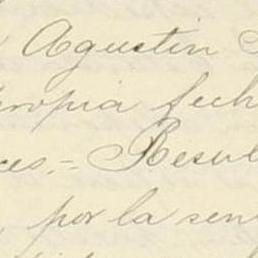 Agustin
ropia fech
ces.= Resul
, por la sen